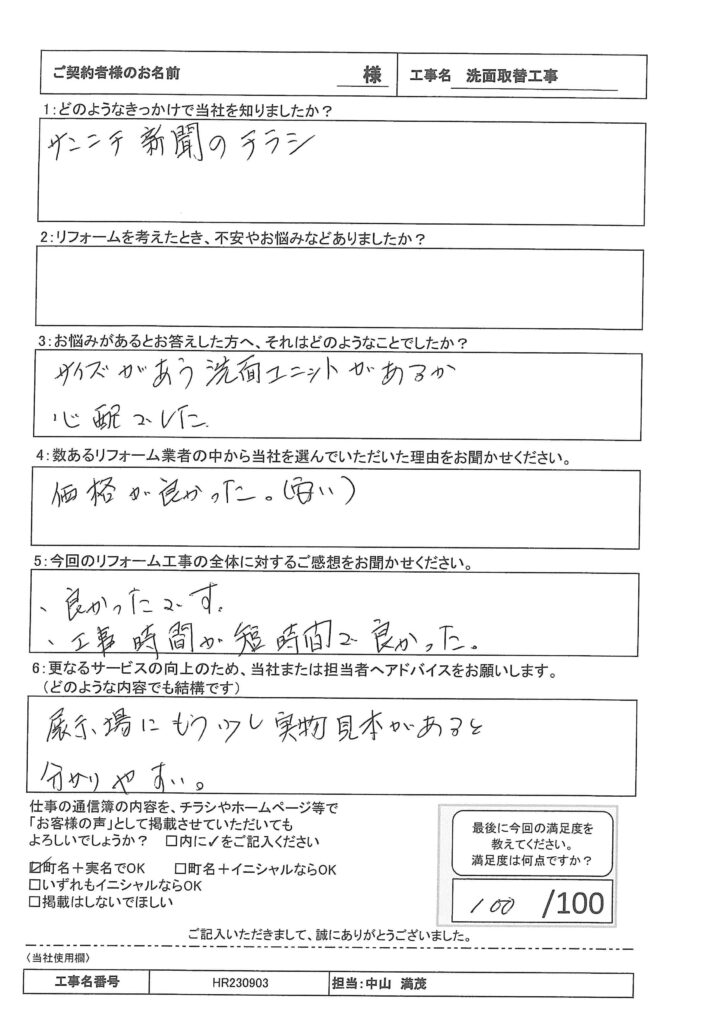 ご契約者様のお名前 様 工事名 洗面取替工事
1：どのようなきっかけで当社を知りましたか？
サンニチ新聞のチラシ
2：リフォームを考えたとき、不安やお悩みなどありましたか？
3：お悩みがあるとお答えした方へ、それはどのようなことでしたか？
サイズがあう洗面ユニットがあるか
心配でした。
4：数あるリフォーム業者の中から当社を選んでいただいた理由をお聞かせください。
価格が良かった。(安い)
5：今回のリフォーム工事の全体に対するご感想をお聞かせください。
、良かったです。
、工事時間が短時間で良かった。
6：更なるサービスの向上のため、当社または担当者へアドバイスをお願いします。
（どのような内容でも結構です）
展示場にもう少し実物見本があると
分かりやすい。
仕事の通信簿の内容を、チラシやホームページ等で
「お客様の声」として掲載させていただいても
よろしいでしょうか？ □内に✓をご記入ください
☑町名＋実名でOK □町名＋イニシャルならOK
□いずれもイニシャルならOK
□掲載はしないでほしい
最後に今回の満足度を
教えてください。
満足度は何点ですか？
100 /100
ご記入いただきまして、誠にありがとうございました。
（当社使用欄）
工事名番号 HR230903 担当：中山 満茂